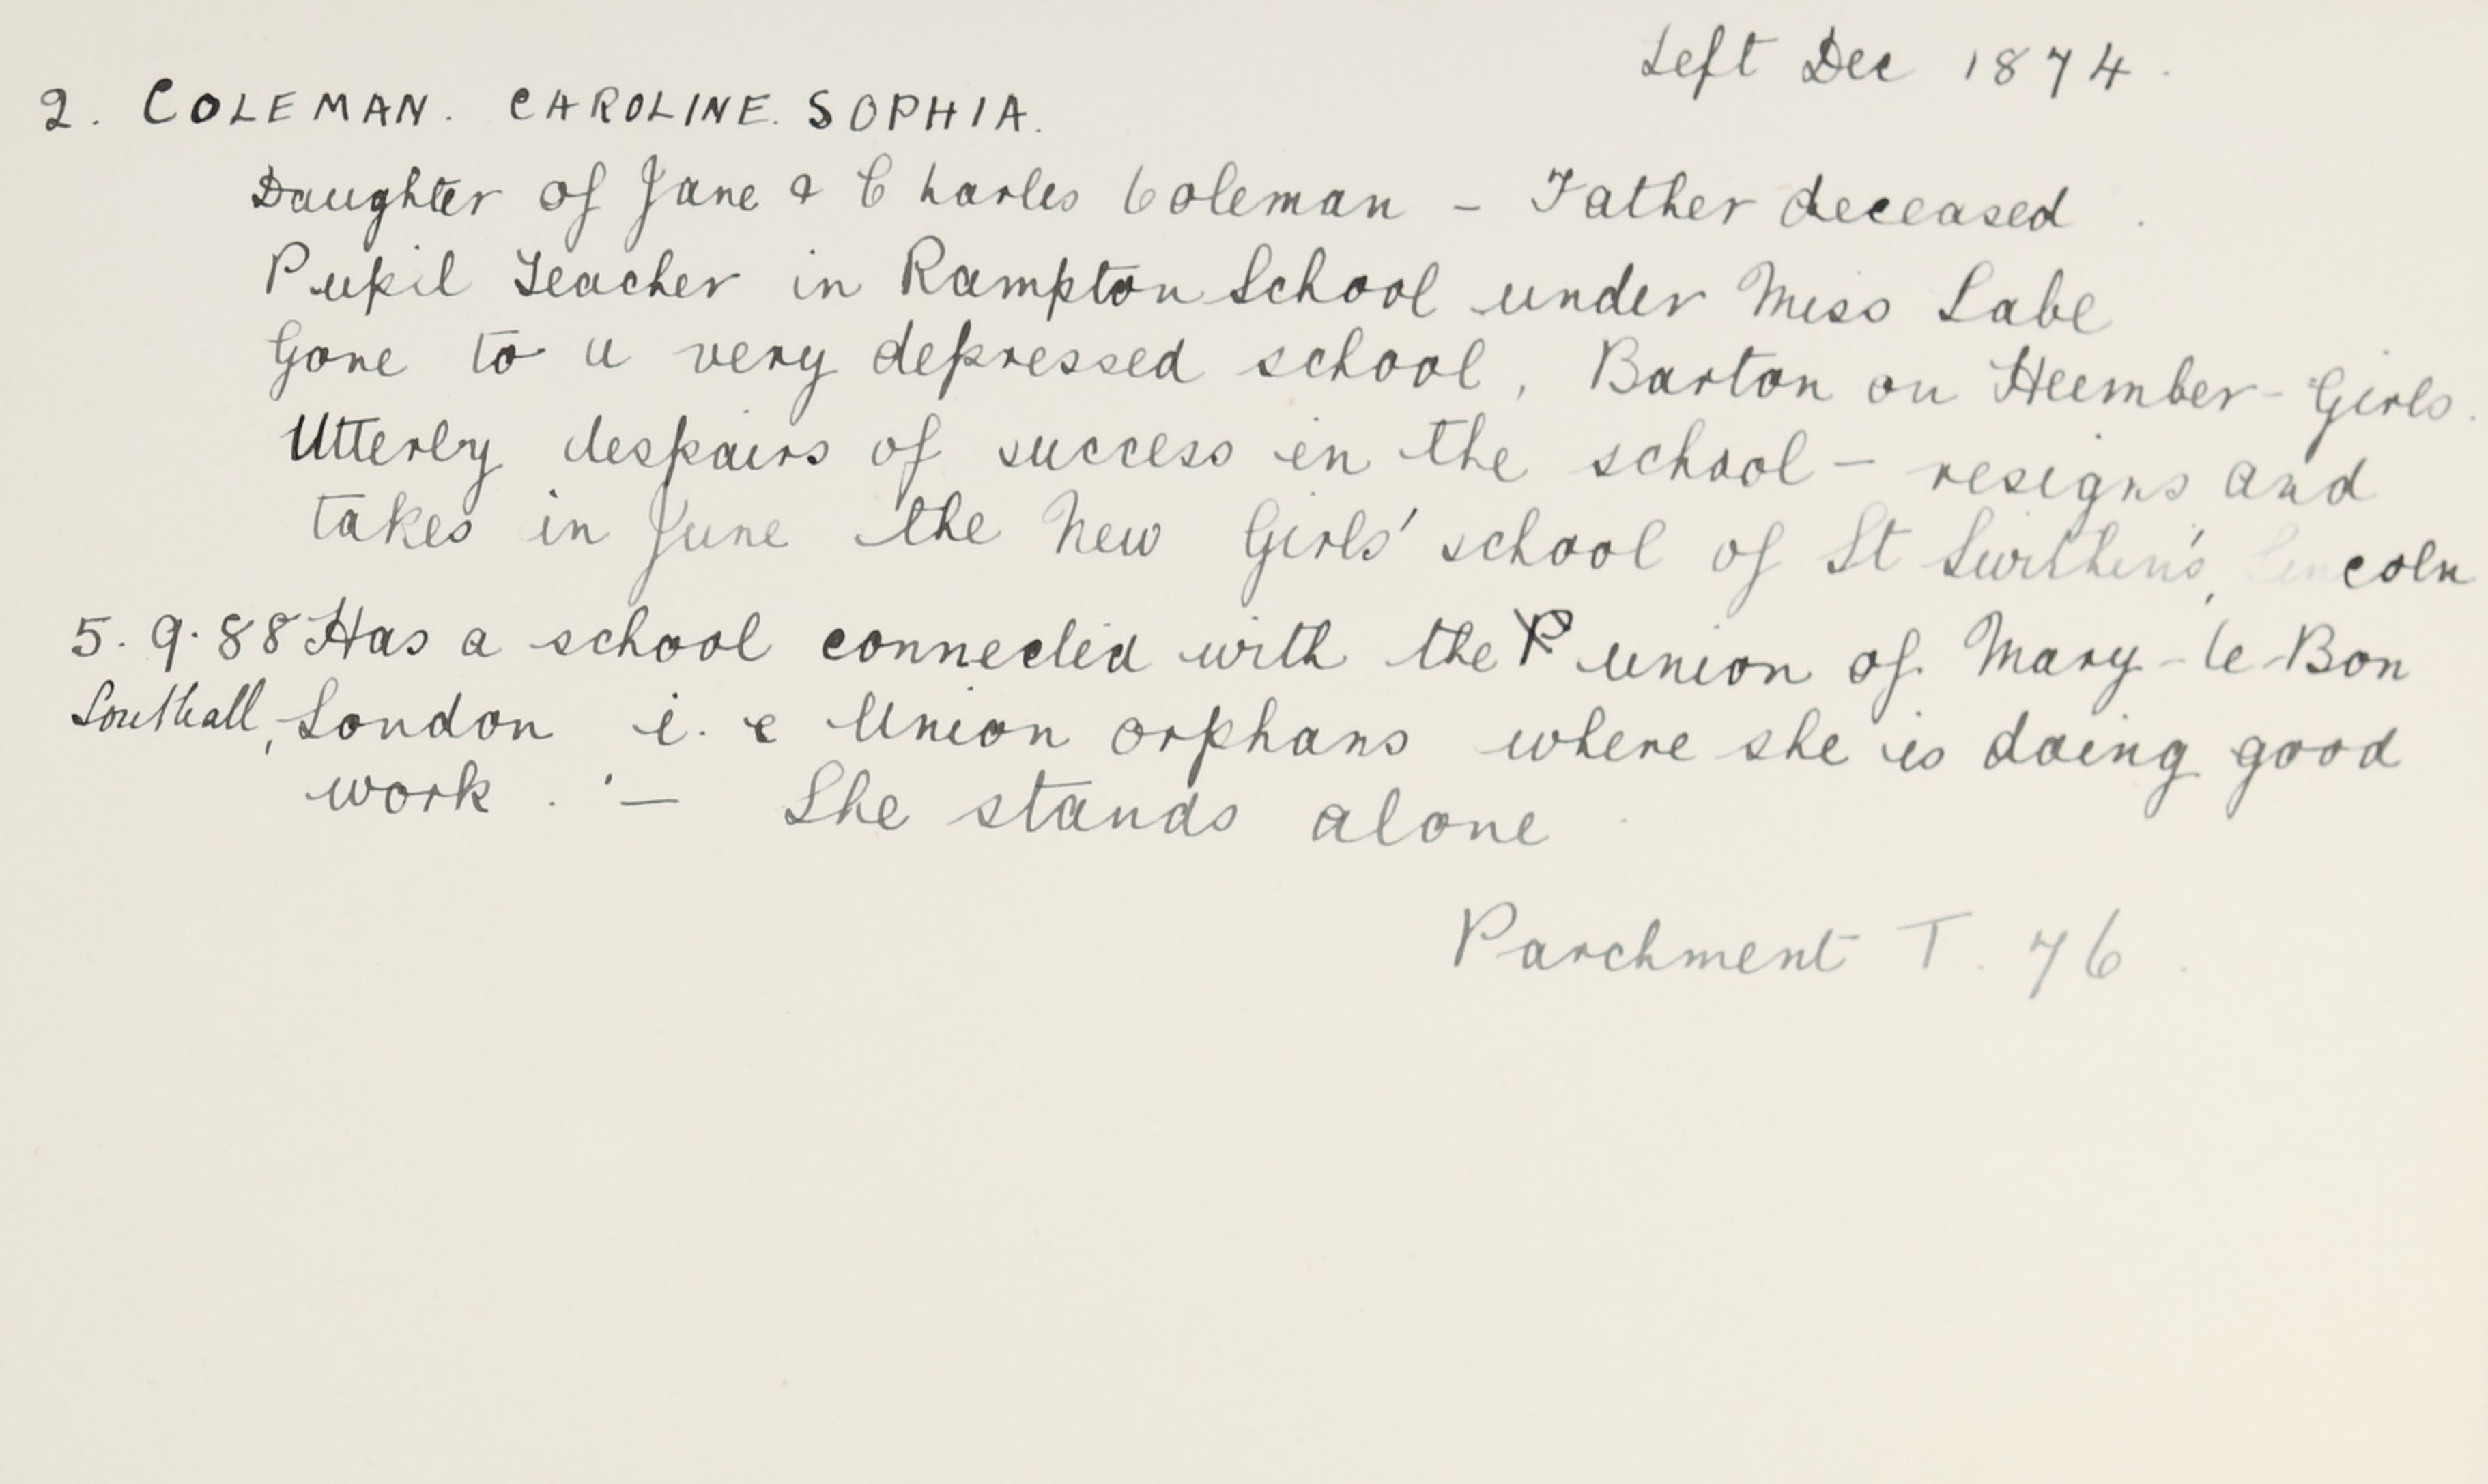 Left Dec 1874.
2. COLEMAN. CAROLINE. SOPHIA.
Daughter of Jane & Charles Coleman - Father deceased.
Pupil Teacher in Rampton School under Miss Labe
Gone to a very depressed school, Barton on Humber - Girls.
Utterly despairs of success in the school - resigns and
takes in June the New Girls' school of St Swithin's, Lincoln
5.9.88 Has a school connected with the P union of Mary-le-Bon
Southall, London i.e Union orphans where she is doing good
work. - She stands alone
Parchment T. 76.